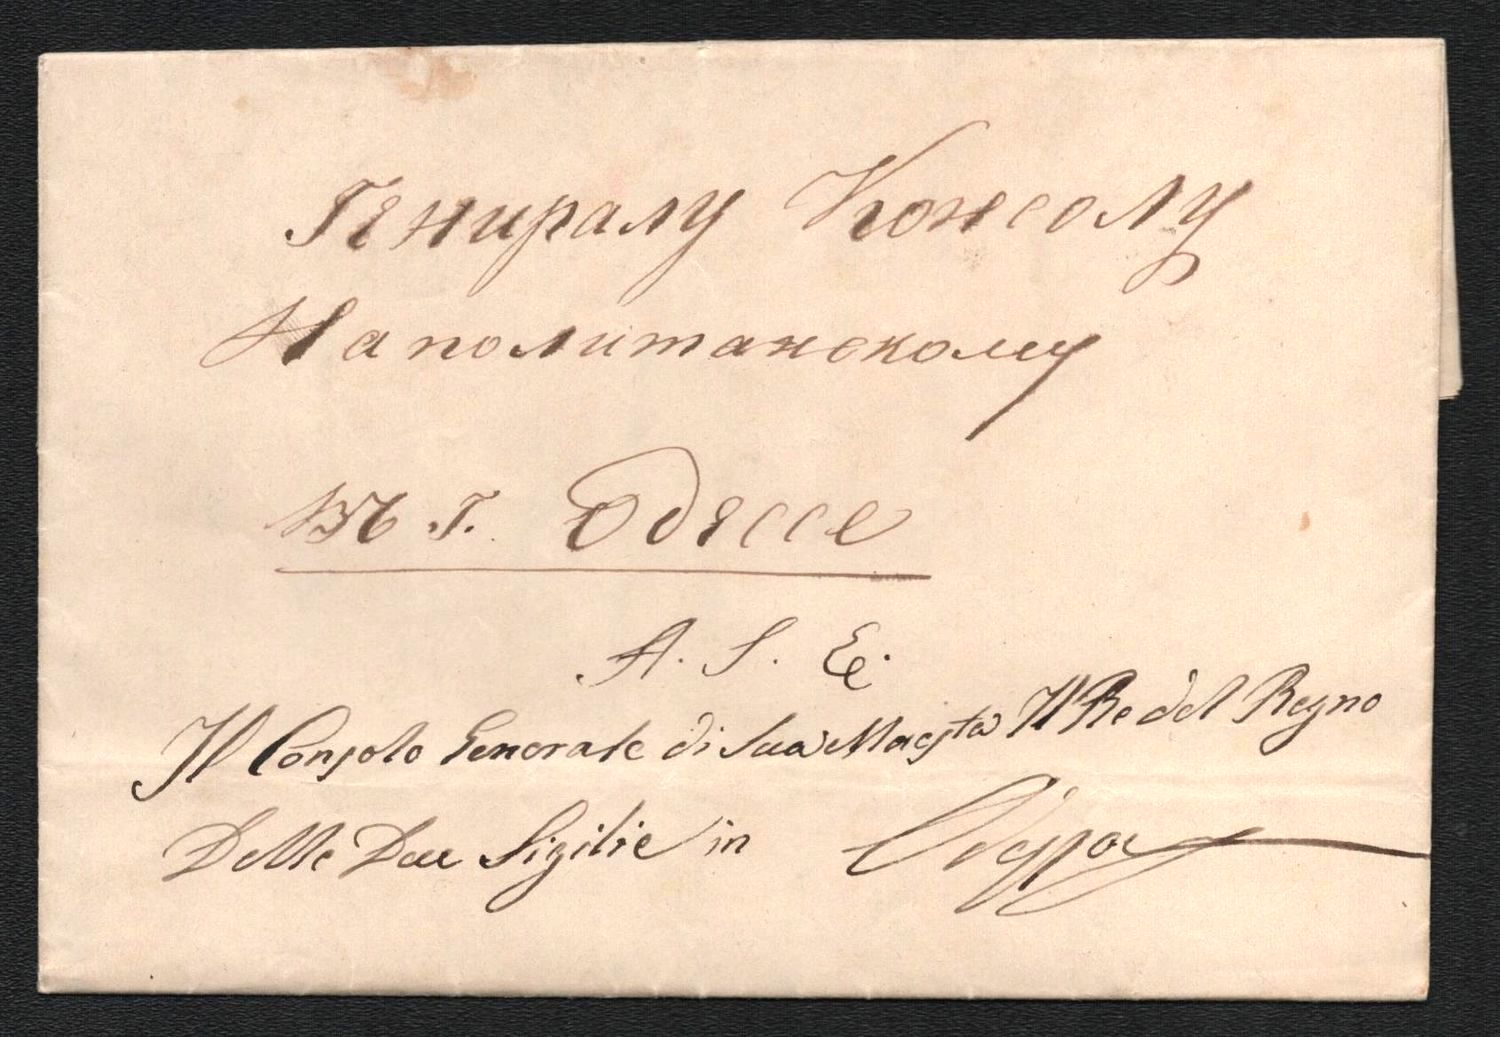 Гениралу Консолу
Наполитанскому
Въ г. Одессе
A. S. E.
Il Consolo Generale di Sua Maestà Il Re del Regno
Delle Due Sizilie in Odessa